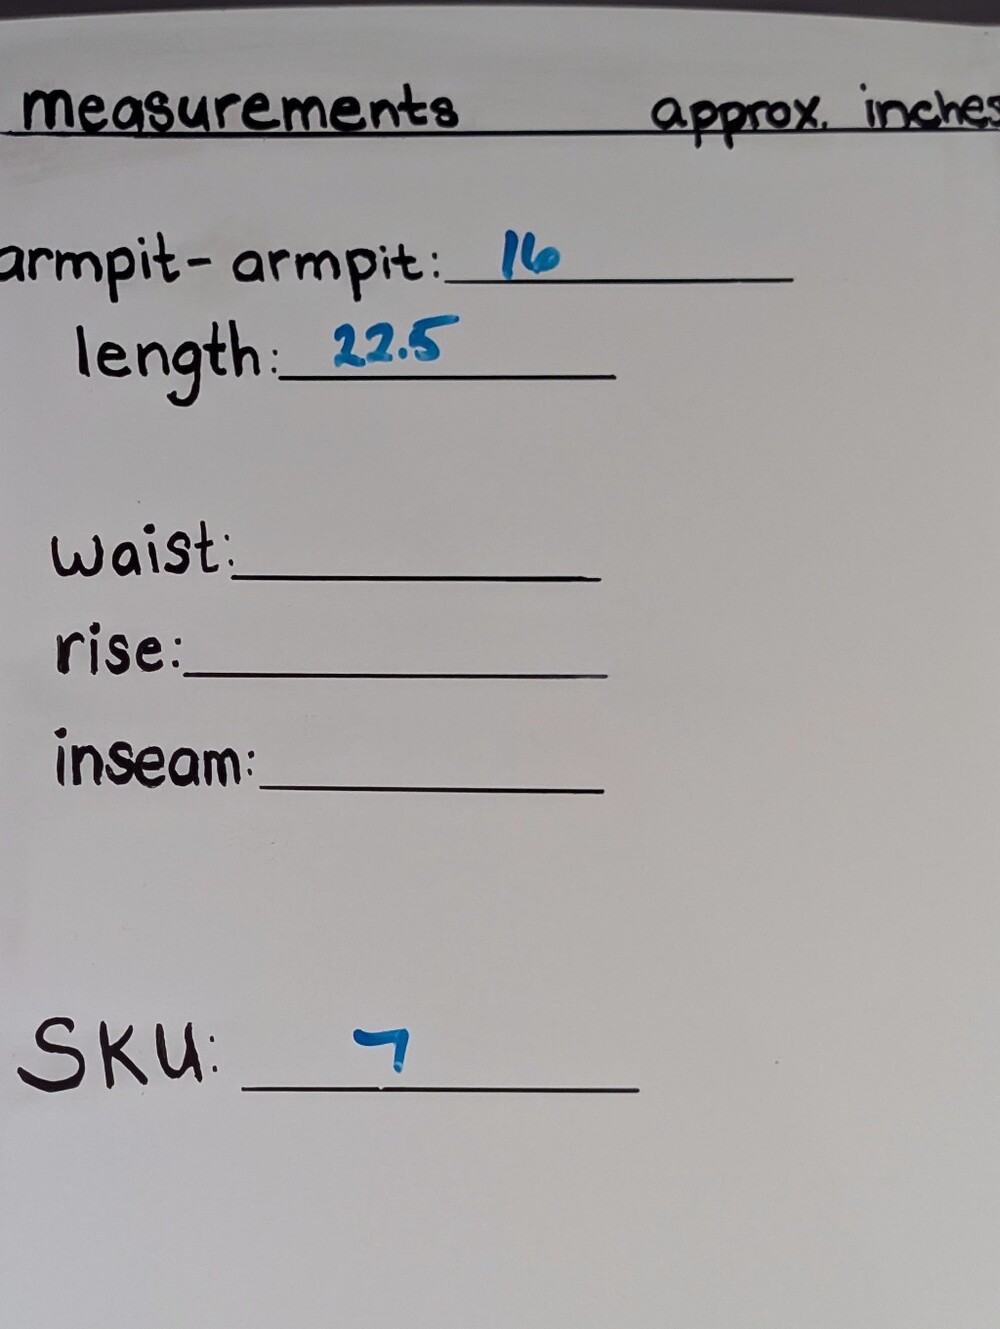 measurements approx. inches
armpit-armpit: 16
length: 22.5
waist:
rise:
inseam:
SKU: 7